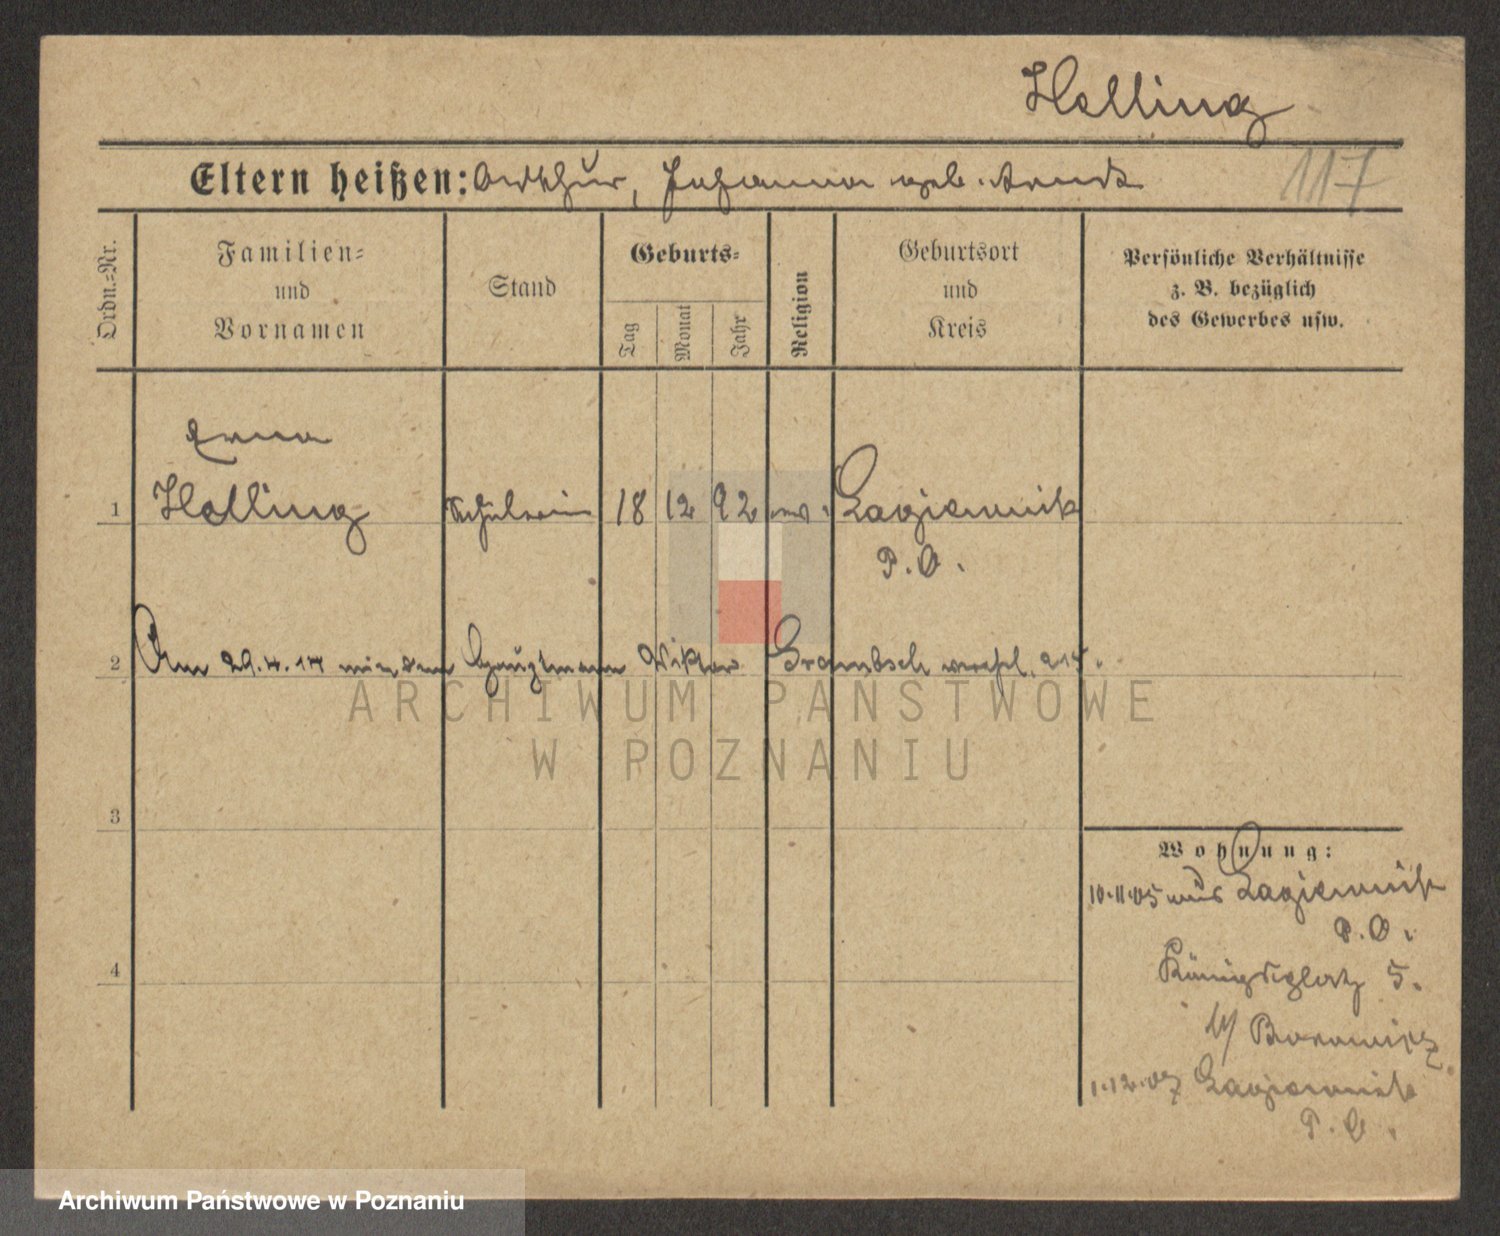 Helling
Eltern heißen: Arthur, Johanna geb. Arndt
117
Ordn.-Nr.
Familien-
und
Vornamen
Stand
Geburts-
Tag
Monat
Jahr
Religion
Geburtsort
und
Kreis
Persönliche Verhältnisse
z. B. bezüglich
des Gewerbes usw.
Erna
1 Helling Schülerin 18 12 92 ev. Lagiewnik
P. O.
2 Am 29.4.14 mit dem Hauptmann Viktor Grambsch verehel.
3
4
Wohnung:
10.11.05 aus Lagiewnik
P. O.
Königsplatz 5.
b/
1.12.07 Lagiewnik
P. O.
ARCHIWUM PAŃSTWOWE
W POZNANIU
Archiwum Państwowe w Poznaniu